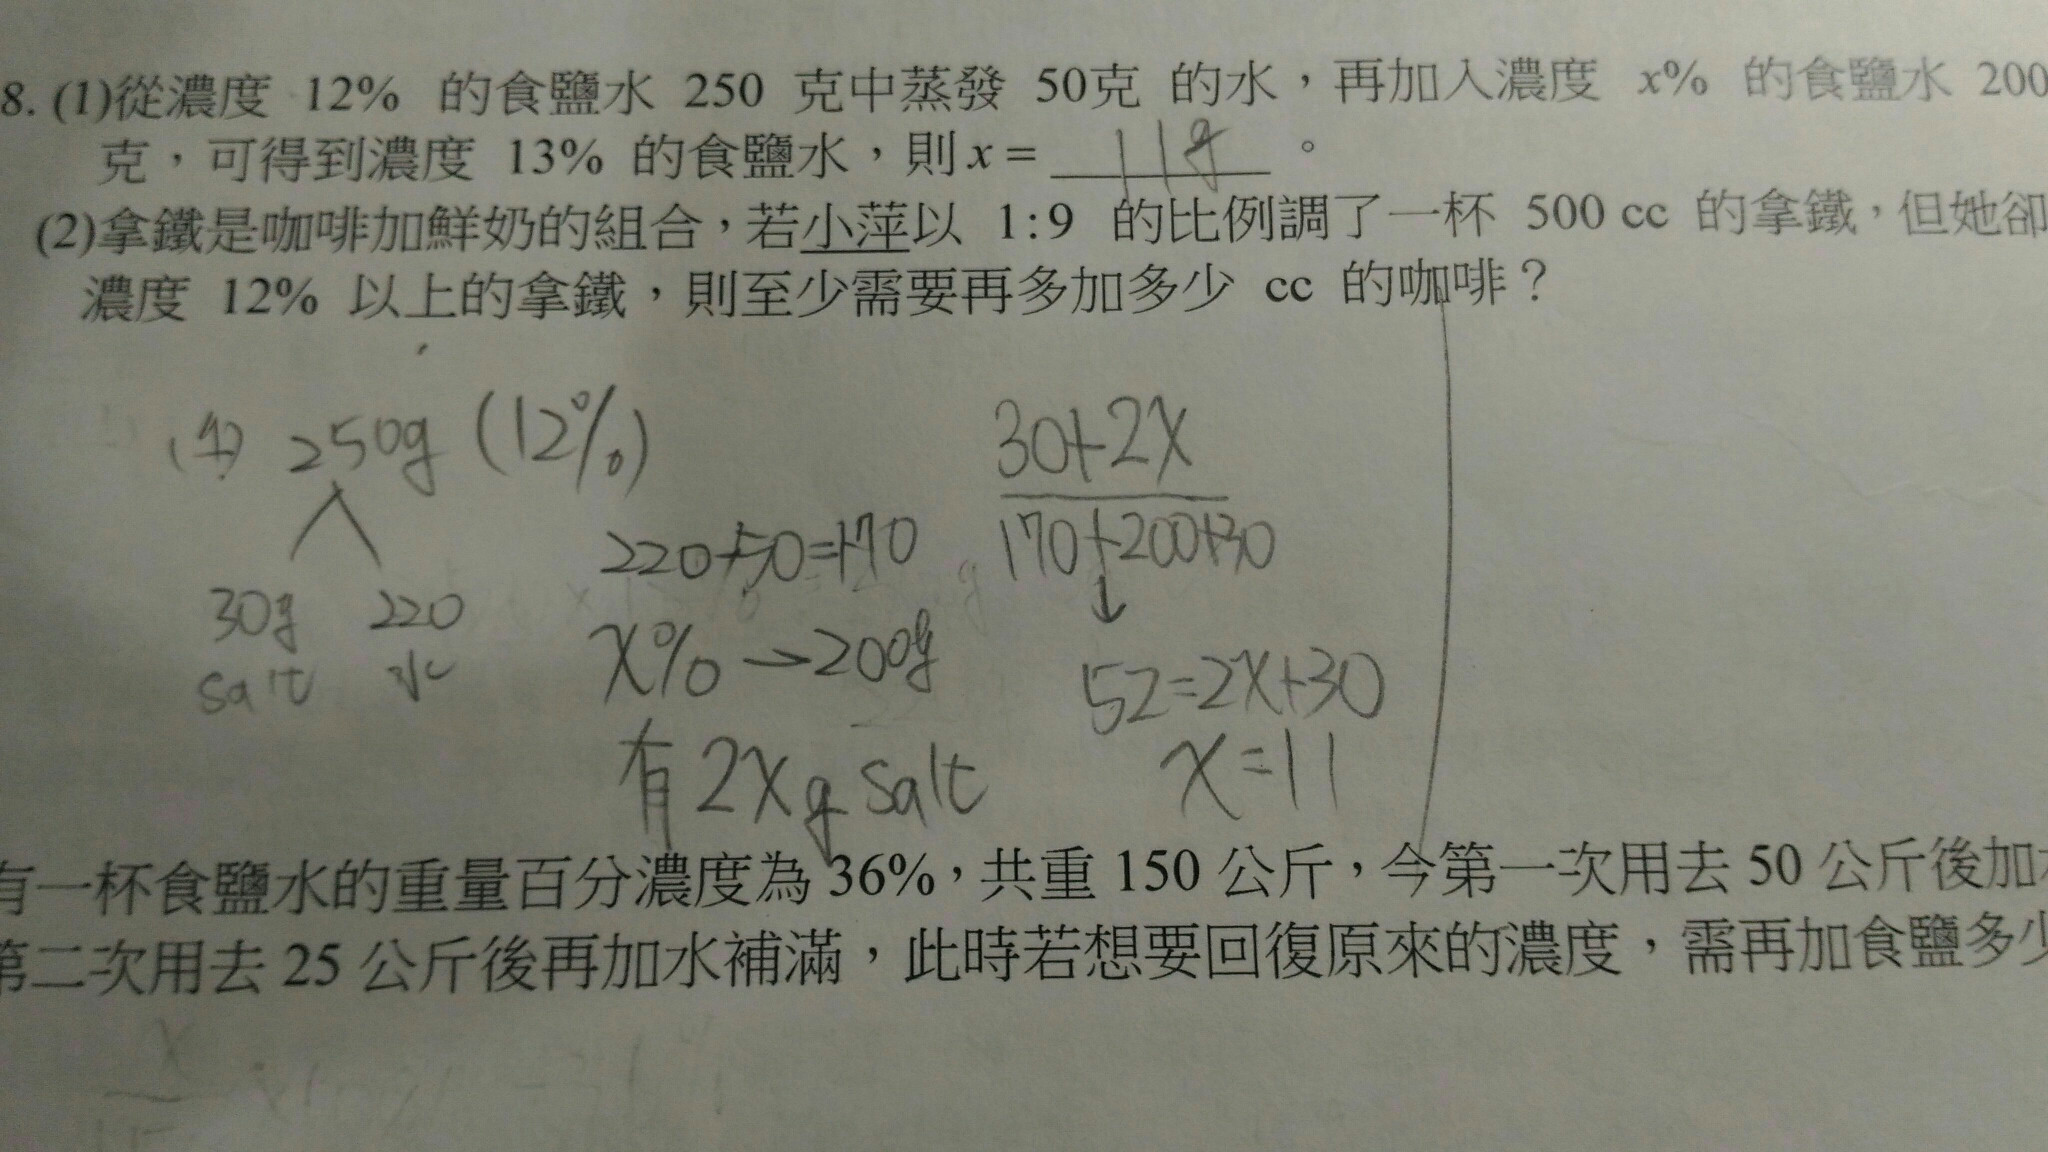 8. (1)從濃度 12% 的食鹽水 250 克中蒸發 50克 的水，再加入濃度 x% 的食鹽水 200
克，可得到濃度 13% 的食鹽水，則x = 11g 。
(2)拿鐵是咖啡加鮮奶的組合，若小萍以 1:9 的比例調了一杯 500 cc 的拿鐵，但她卻
濃度 12% 以上的拿鐵，則至少需要再多加多少 cc 的咖啡？
250g (12%)
30g 220
salt 水
220-50=170
x% → 200g
有 2x g salt
30+2x
170+200+30
↓
52=2x+30
x=11
有一杯食鹽水的重量百分濃度為 36%，共重 150 公斤，今第一次用去 50 公斤後加
第二次用去 25 公斤後再加水補滿，此時若想要回復原來的濃度，需再加食鹽多少